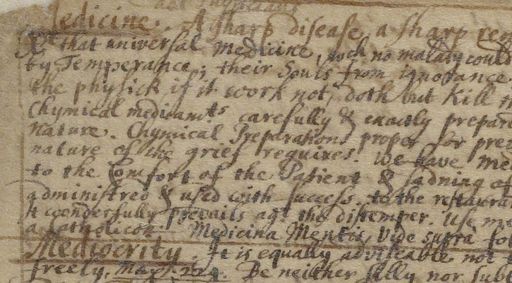 Medicine. A sharp disease a sharp rem
that universal medicine, wch no malady could
by Temperance; their Souls from ignorance.
the physick if it work not, doth but kill
Chymical medicamts carefully & exactly prepar
nature. Chymical Preparations proper for pre
nature of the grief requires. We have me
to the Comfort of the Patient & adning of
administred & used with success to the restaurat
it wonderfully prevails agt the distemper. Use me
a catholicon. Medicina Mentis, Vide supra fol
Mediocrity. It is equally adviseable not
freely, May. 229. Be neither silly nor subt